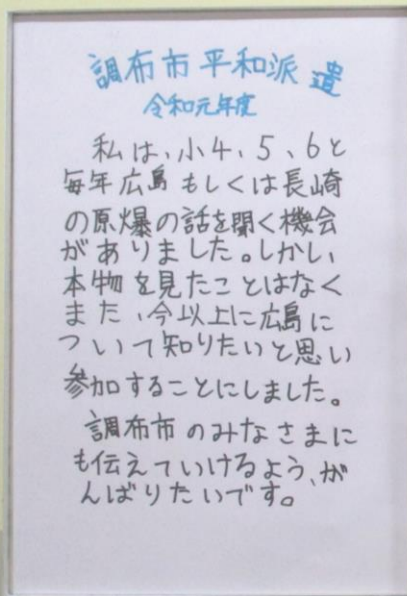 調布市平和派遣
令和元年度
私は、小4、5、6と
毎年広島もしくは長崎
の原爆の話を聞く機会
がありました。しかし、
本物を見たことはなく
また、今以上に広島に
ついて知りたいと思い
参加することにしました。
調布市のみなさまに
も伝えていけるよう、が
んばりたいです。